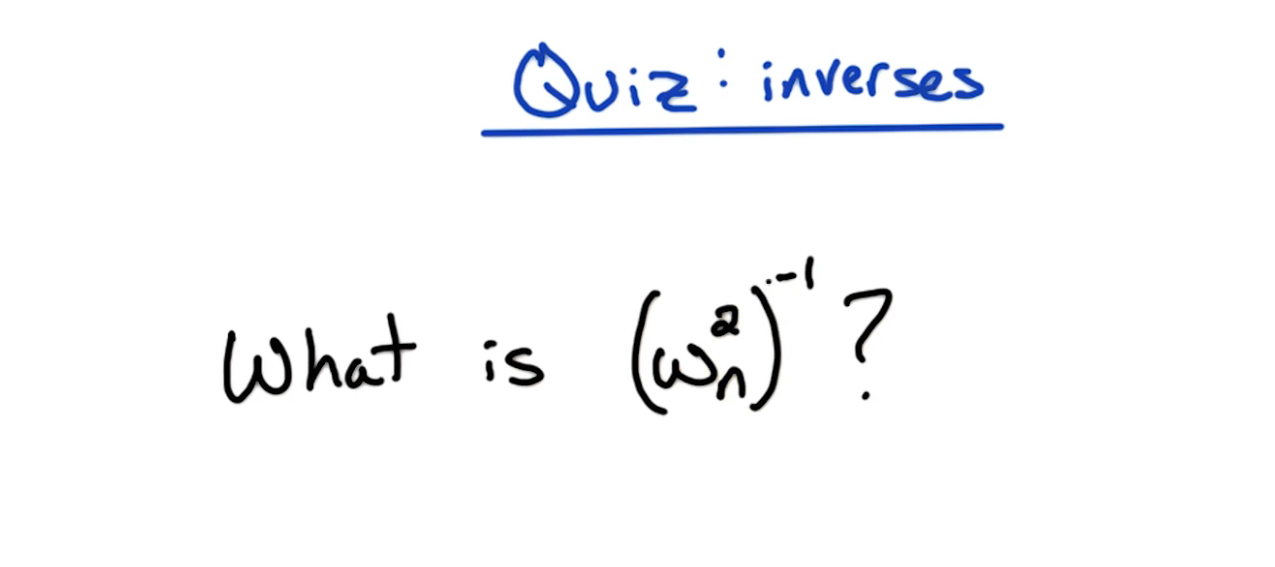 Quiz: inverses
What is (ωₙ²)⁻¹?